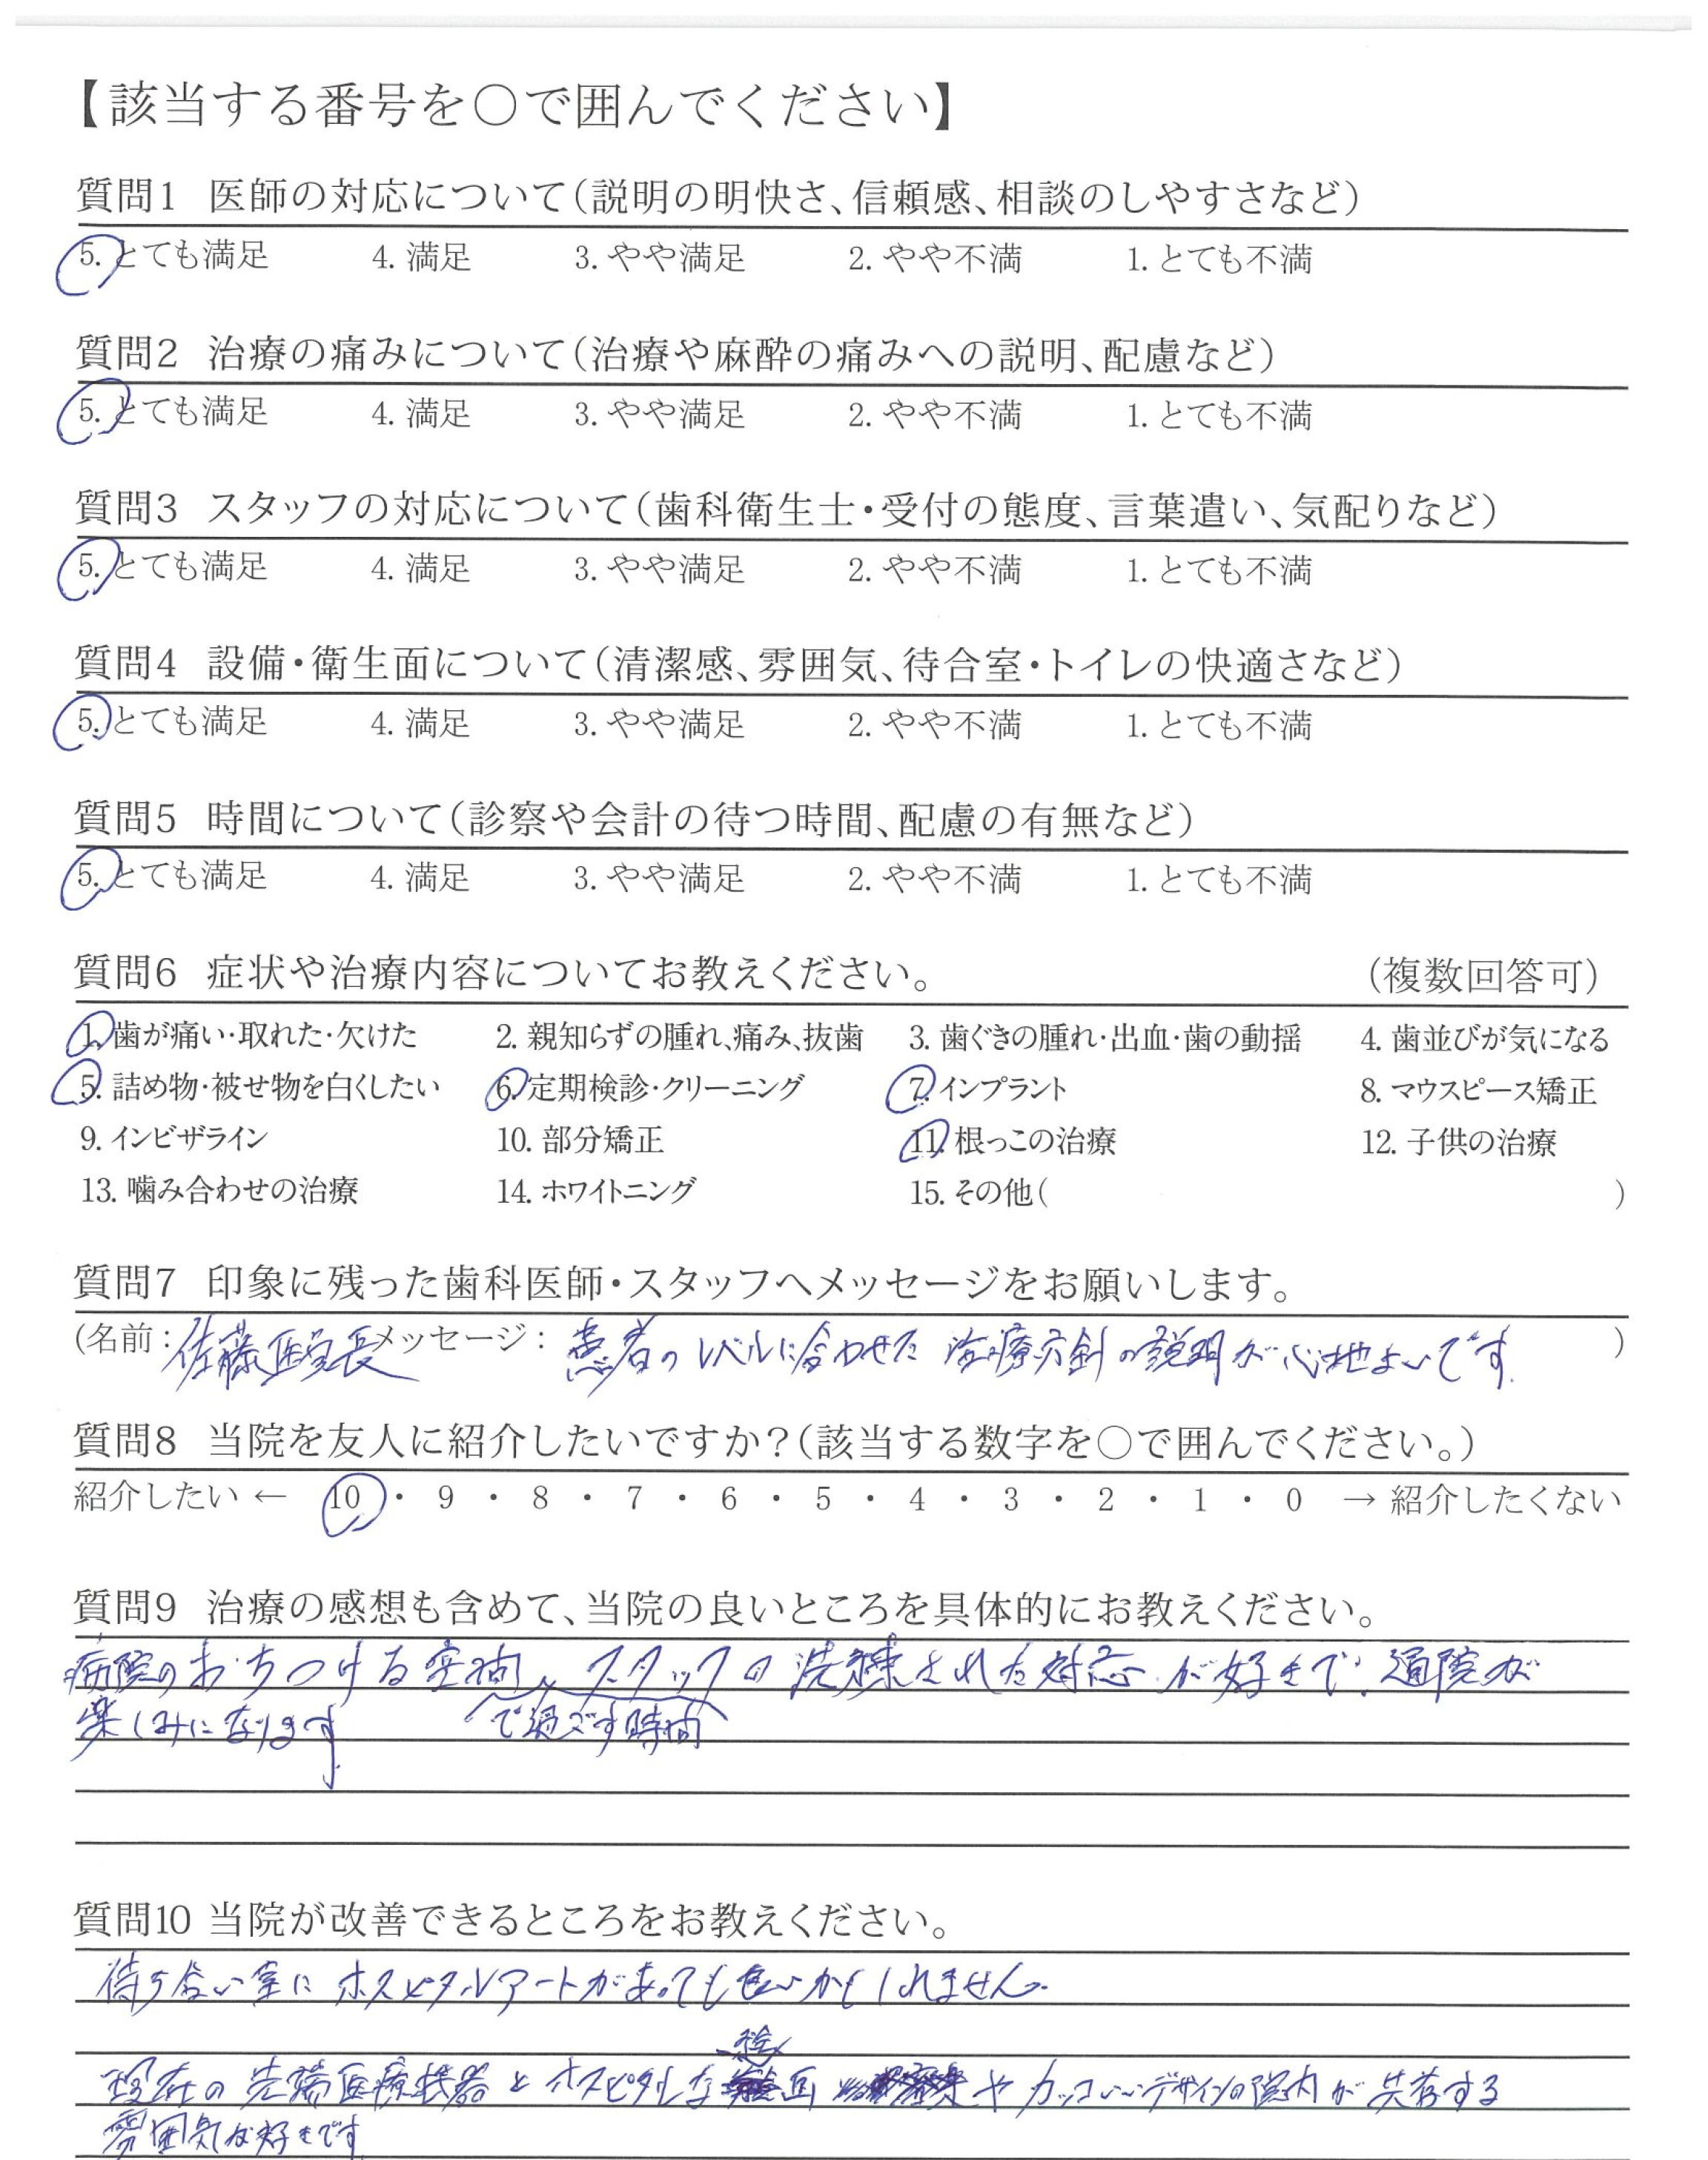 【該当する番号を○で囲んでください】
質問1 医師の対応について(説明の明快さ、信頼感、相談のしやすさなど)
5. とても満足 4. 満足 3. やや満足 2. やや不満 1. とても不満
質問2 治療の痛みについて(治療や麻酔の痛みへの説明、配慮など)
5. とても満足 4. 満足 3. やや満足 2. やや不満 1. とても不満
質問3 スタッフの対応について(歯科衛生士・受付の態度、言葉遣い、気配りなど)
5. とても満足 4. 満足 3. やや満足 2. やや不満 1. とても不満
質問4 設備・衛生面について(清潔感、雰囲気、待合室・トイレの快適さなど)
5. とても満足 4. 満足 3. やや満足 2. やや不満 1. とても不満
質問5 時間について(診察や会計の待つ時間、配慮の有無など)
5. とても満足 4. 満足 3. やや満足 2. やや不満 1. とても不満
質問6 症状や治療内容についてお教えください。 (複数回答可)
1. 歯が痛い・取れた・欠けた 2. 親知らずの腫れ、痛み、抜歯 3. 歯ぐきの腫れ・出血・歯の動揺 4. 歯並びが気になる
5. 詰め物・被せ物を白くしたい 6. 定期検診・クリーニング 7. インプラント 8. マウスピース矯正
9. インビザライン 10. 部分矯正 11. 根っこの治療 12. 子供の治療
13. 噛み合わせの治療 14. ホワイトニング 15. その他( )
質問7 印象に残った歯科医師・スタッフへメッセージをお願いします。
(名前: 佐藤医室長 メッセージ: 患者のレベルに合わせた 治療方針の説明が心地よいです )
質問8 当院を友人に紹介したいですか?(該当する数字を○で囲んでください。)
紹介したい ← 10 ・ 9 ・ 8 ・ 7 ・ 6 ・ 5 ・ 4 ・ 3 ・ 2 ・ 1 ・ 0 → 紹介したくない
質問9 治療の感想も含めて、当院の良いところを具体的にお教えください。
病院のおちつける空間、スタッフの洗練された対応が好きで、通院が
楽しみになります で過ごす時間
質問10 当院が改善できるところをお教えください。
待ち合い室にホスピタルアートがあっても良いかもしれません。
現在の先端医療機器とホスピタルな絵画やカッコいいデザインの院内が共存する
雰囲気が好きです